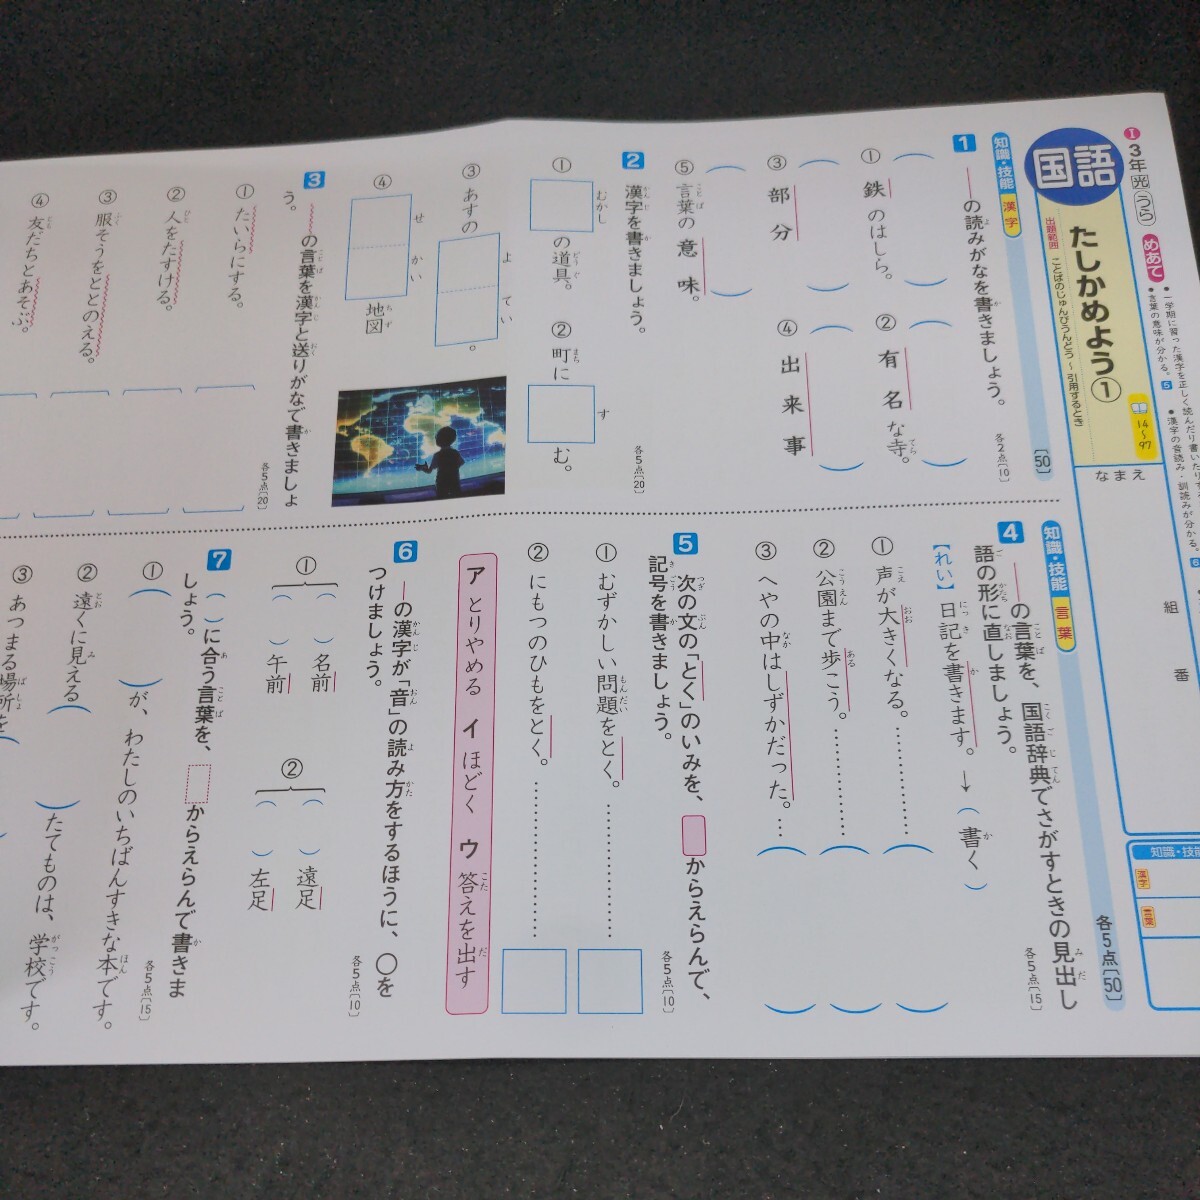 1 3年 光 うら
めあて
●一学期に習った漢字を正しく読んだり書いたりす
●言葉の意味が分かる。 5
●漢字の音読み・訓読みが分かる。 6
国語
たしかめよう①
出題範囲 ことばのじゅんびうんどう～引用するとき
14～97
なまえ
組
番
知識・技能
漢字
言葉
知識・技能 漢字
[50]
1 ──の読みがなを書きましょう。
各2点[10]
① 鉄のはしら。
② 有名な寺。
③ 部分
④ 出来事
⑤ 言葉の意味。
2 漢字を書きましょう。
各5点[20]
① むかし の道具。
② 町に す む。
③ あすの よてい 。
④ せかい 地図
3 ～～の言葉を漢字と送りがなで書きましょう。
各5点[20]
① たいらにする。
② 人をたすける。
③ 服そうをととのえる。
④ 友だちとあそぶ。
知識・技能 言葉
各5点[50]
4 ──の言葉を、国語辞典でさがすときの見出し語の形に直しましょう。
各5点[15]
【れい】日記を書きます。→（書く）
① 声が大きくなる。
② 公園まで歩こう。
③ へやの中はしずかだった。
5 次の文の「とく」のいみを、 からえらんで、記号を書きましょう。
各5点[10]
① むずかしい問題をとく。
② にもつのひもをとく。
ア とりやめる イ ほどく ウ 答えを出す
6 ──の漢字が「音」の読み方をするほうに、○をつけましょう。
各5点[10]
① （ ）名前 （ ）午前
② （ ）遠足 （ ）左足
7 （ ）に合う言葉を、 からえらんで書きましょう。
各5点[15]
① （ ）が、わたしのいちばんすきな本です。
② 遠くに見える（ ）たてものは、学校です。
③ あつまる場所を（